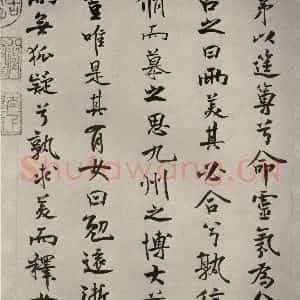 茅以筳篿兮命靈氛為
占之曰兩美其必合兮孰信
脩而慕之思九州之博大
豈唯是其有女曰勉遠逝
而無狐疑兮孰求美而釋
Shufawang.CN